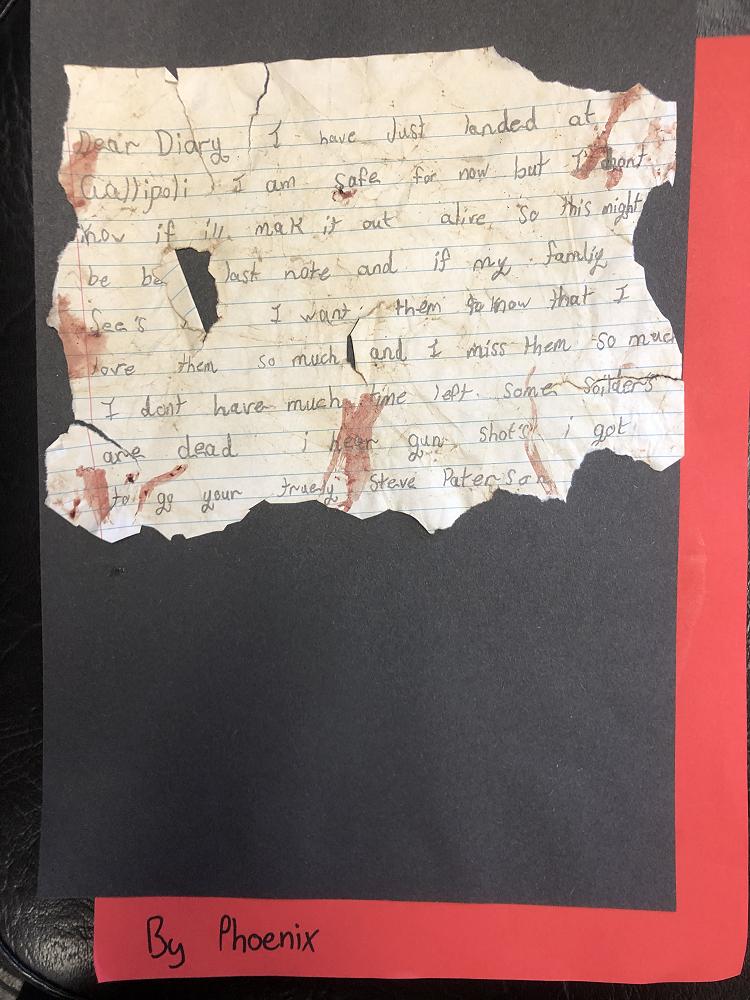 Dear Diary I have Just landed at
Gallipoli I am safe for now but I dont
Know if ill mak it out alive so this might
be be last note and if my famliy
See's I want them to know that I
love them so much and I miss them so much
I dont have much time left. some soilder's
are dead i heer gun shot's i got
to go your truely Steve Paterson
By Phoenix